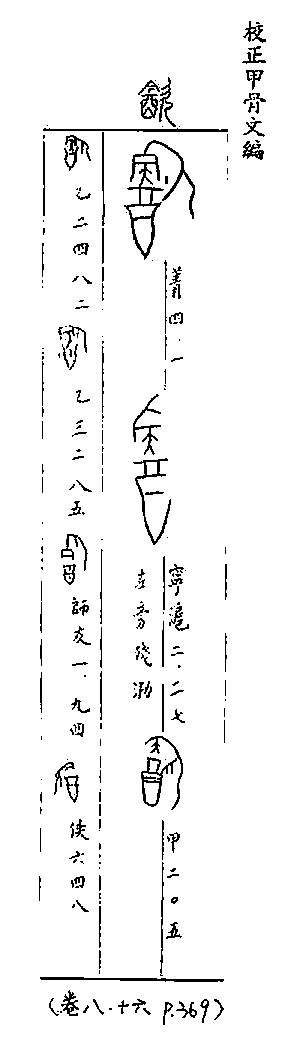 校正甲骨文編
菁四.一
寧滬二.二七
左旁殘泐
甲二〇五
乙二四八二
乙三二八五
師友一.九四
佚六四八
(卷八.十六 P.369)